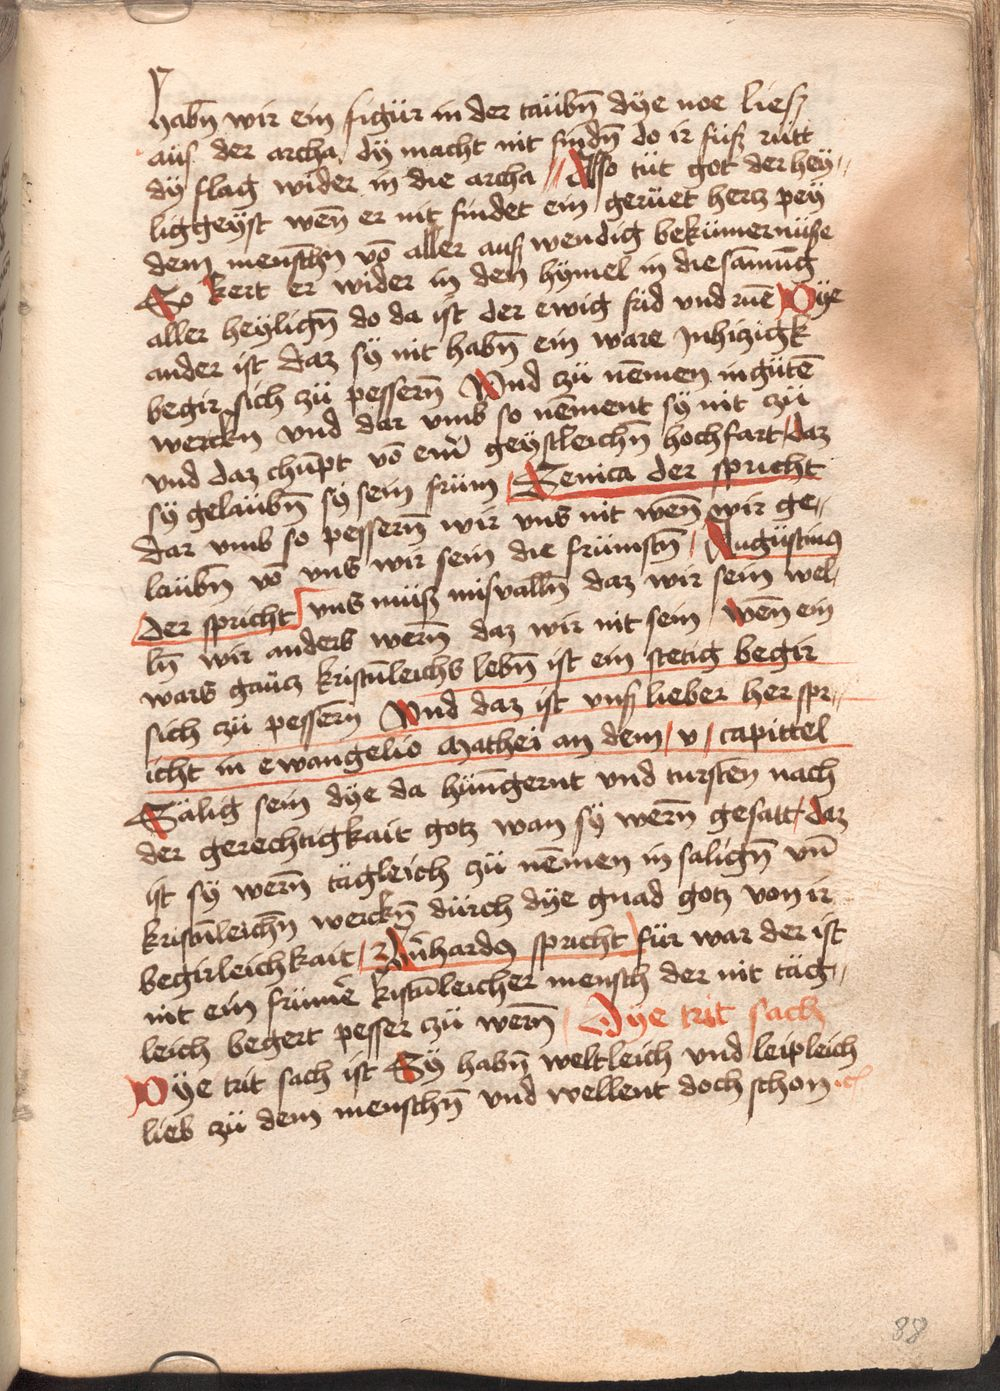 habn̄ wir ein figur in der taübn̄ dÿe noe lieſz
auſz der archa dÿ macht nit findn̄ do ir füſz rütt
dÿ flag wider in die archa // Alſo tüt got der heÿ//
lig geÿſt wen̄ er nit findet ein gerüet hercz peÿ
dem menſchn̄ vō aller auſz wendig bekümernüſſe
So kert er wider in den hÿmel in die ſamūg
aller heÿlign̄ do da iſt der ewig frid vnd ruē Dÿe
ander iſt daz ſÿ nit habn̄ ein ware Jnhiczigk
begir ſich zü peſſern̄ Vnd zü nēmen in gütē
werckn̄ vnd dar vmb ſo nēment ſÿ nit zü
vnd daz chūpt vō eiīr geÿſtleichn̄ hochfart / daz
ſÿ gelaübn̄ ſÿ ſein früm / Senica der ſpricht
dar vmb ſo peſſern̄ wir vns nit wen̄ wir ge//
laübn̄ vō vns wir ſein die frümſtn̄ / Auguſtinus
der ſpricht vns müſz miſvalln̄ daz wir ſein wel/
ln̄ wir anders wern̄ daz wir nit ſein / wen̄ ein
wars gancz kriſtn̄leichs lebn̄ iſt ein ſtetig begir
ſich zü peſſern̄ Vnd daz iſt vnſz lieber her ſpr//
icht in ewangelio Mathei an dem / v / capittel
Sälig ſein dÿe da hüngernt vnd turſten nach
der gerechtigkait gotz wan ſÿ wern̄ geſatt / daz
iſt ſÿ wern̄ tägleich zü nēmen in ſalign̄ vn̄
kriſtn̄leichn̄ werckn̄ dürch dÿe gnad gotz von ir
begirleichkait / Bn̄hardus ſpricht für war der iſt
nit ein frümēr kiſtn̄leicher menſch der nit täg//
leich begert peſſer zü wern̄ / Dÿe trit ſach
Dÿe trit ſach iſt Sÿ habn̄ weltleich vnd leipleich
lieb zü dem menſchn̄ vnd wellent doch ſchon
88